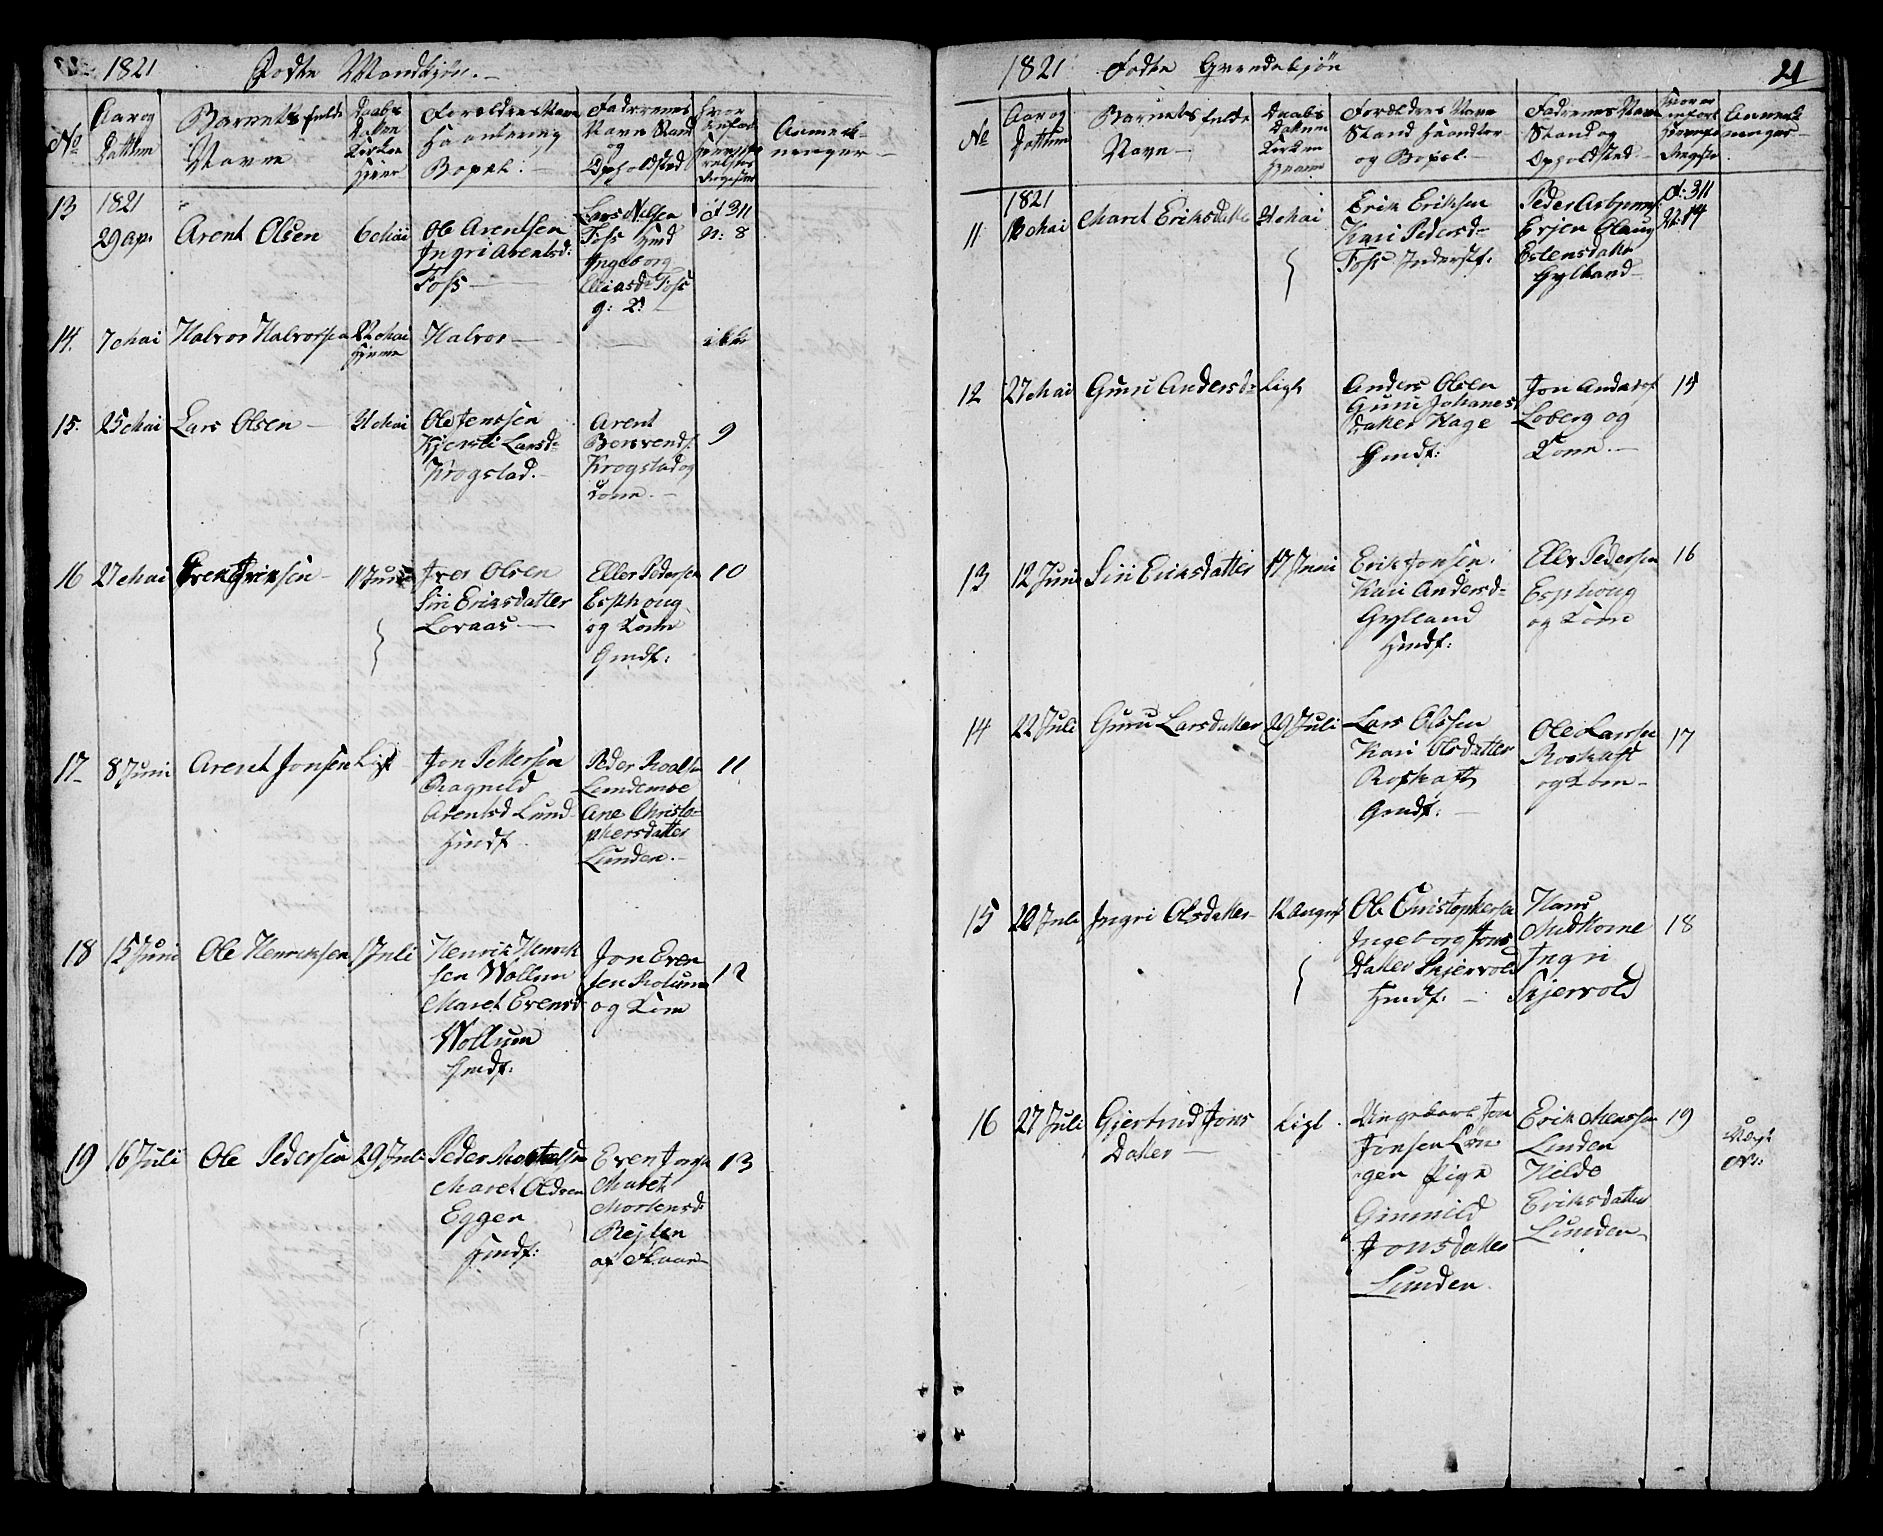 1821 Fødte Mandkjøn. -
No
Aar og Dattum
Barnets fulde Navne
Daabs Daten Kirken Hiem
Forældres Navn Haantering Bopæl. -
Faddernes Navn Stand og Opholdsted
hvor indført
Anmerk-
ninger -
13 1821
29 ap. Arent Olsen 6 Mai
Ole Arentsen
Ingri Arentsd:
Foss
Lars Nilsen
Foss
Ingeborg
Eliasd: Foss
311
N: 8
14. 7 Mai Halvor Halvorsen 22 Mai
Hiemme
Halvor -
ikke
15. 25 Mai Lars Olsen - 31 Mai
Ole Jenssen
Kjersti Larsd:
Krogstad. -
Arent
Krogstad og
Kone. -
9
16 27 Mai 11 Juni
Iver Olsen
Siri Eriksdatter
Loraas -
Eller Pedersen
Esphoug
og Kone
Gmdf:
10
17 8 Juni Arent Jonsen Ligt
Jon Pettersen
Ragnild
Arentsd Lund
Hmdf.
Peder Roalts
Lundemoe
Ane Christo-
phersdatter
Lunden. -
11
18 15 Juni Ole Henriksen 1 Juli
Henrik Henrik
sen Wollum
Maret Evensd
Wollum
Hmdf:
Jon Even
sen Solum
og Kone
12
19 16 Juli Ole Pedersen 29 Juli
Peder
Maret
Eggen
Hmdf:
Even
Maret
Mortensd:
13
1821 Fødte Qvindekjøn 21
No
Aar og Dattum
Barnets fulde Navn -
Daabs Datum Kirken Hiemme
Forældres Navn Stand Haandter og Bopæl. -
Faddernes Navn Stand og Opholdsted -
Hvor er indført
Anmerk-
ninger -
1821
11 Mai Maret Eriksdatter 31 Mai
Erik Eriksen
Kari Pedersd:
Foss Inderstf:
Peder
Estensdatter
Gylland
311
N: 14
12 27 Mai Guru Andersd: Ligt
Anders Olsen
Guru Johanes
datter Hage
Gmdf:
Jon Anders
Loberg og
Kone. -
15
13 12 Juni Siri Eriksdatter 17 Juni
Erik Jonsen.
Kari Andersd:
Gylland
Hmdf:
Eller Pedersen
Esphoug
og Kone
16
14 22 Juli Guru Larsdatter 29 Juli
Lars Olssen
Kari Olsdatter
Roskaft
Gmdf: -
Ole Larsen
Roskaft
og Kone -
17
15 20 Juli Ingri Olsdatter 12 August
Ole Christophersen
Ingeborg Jons
datter Skjervold
Hmdf: -
Hans
Ingri
Skjervold
18
16 27 Juli Gjertrud Jons Ligt.
Datter -
Ungekarl Jon
Jonsen
Pige
Gunnild
Jonsdatter
Lunden.
Erik
Lunden
Kilde
Eriksdatter
Lunden
19